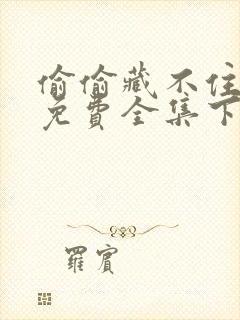 偷偷藏不住
免费全集下
羅賓